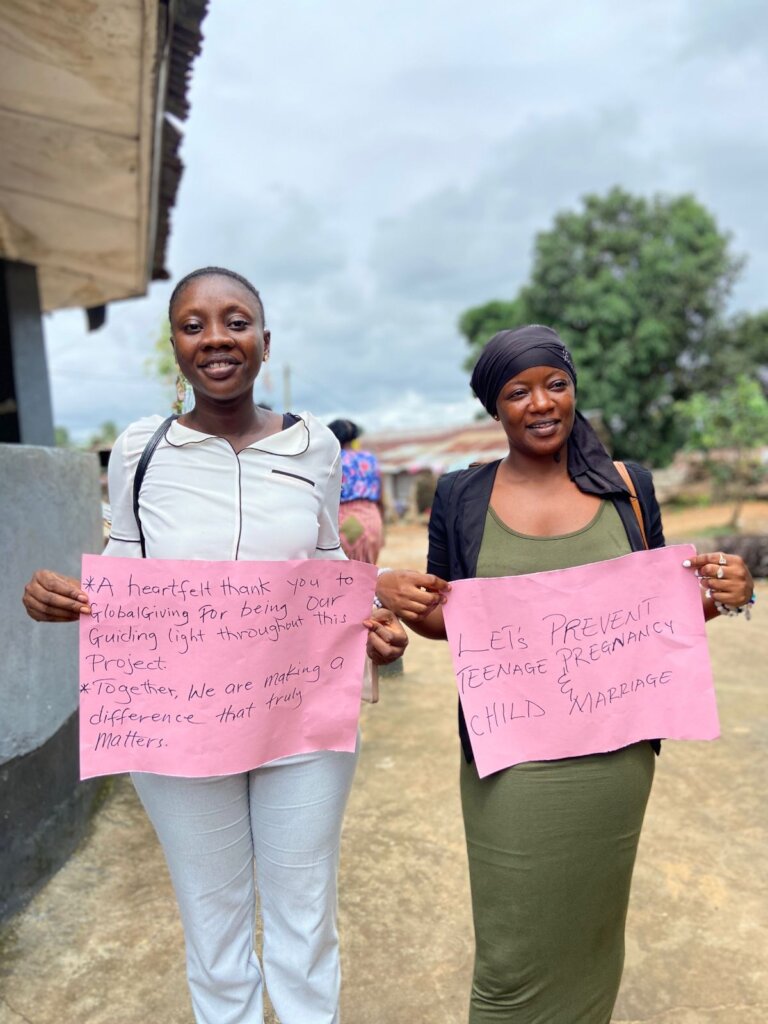 *A heartfelt thank you to
GlobalGiving For being Our
Guiding light throughout this
Project.
*Together, We are making a
difference that truly
Matters.
LET'S PREVENT
TEENAGE PREGNANCY
&
CHILD MARRIAGE